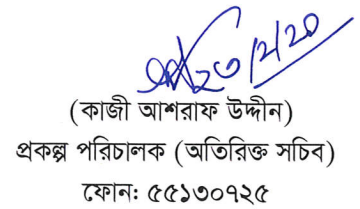 ২৩/২/২০
(কাজী আশরাফ উদ্দীন)
প্রকল্প পরিচালক (অতিরিক্ত সচিব)
ফোন: ৫৫১৩০৭২৫